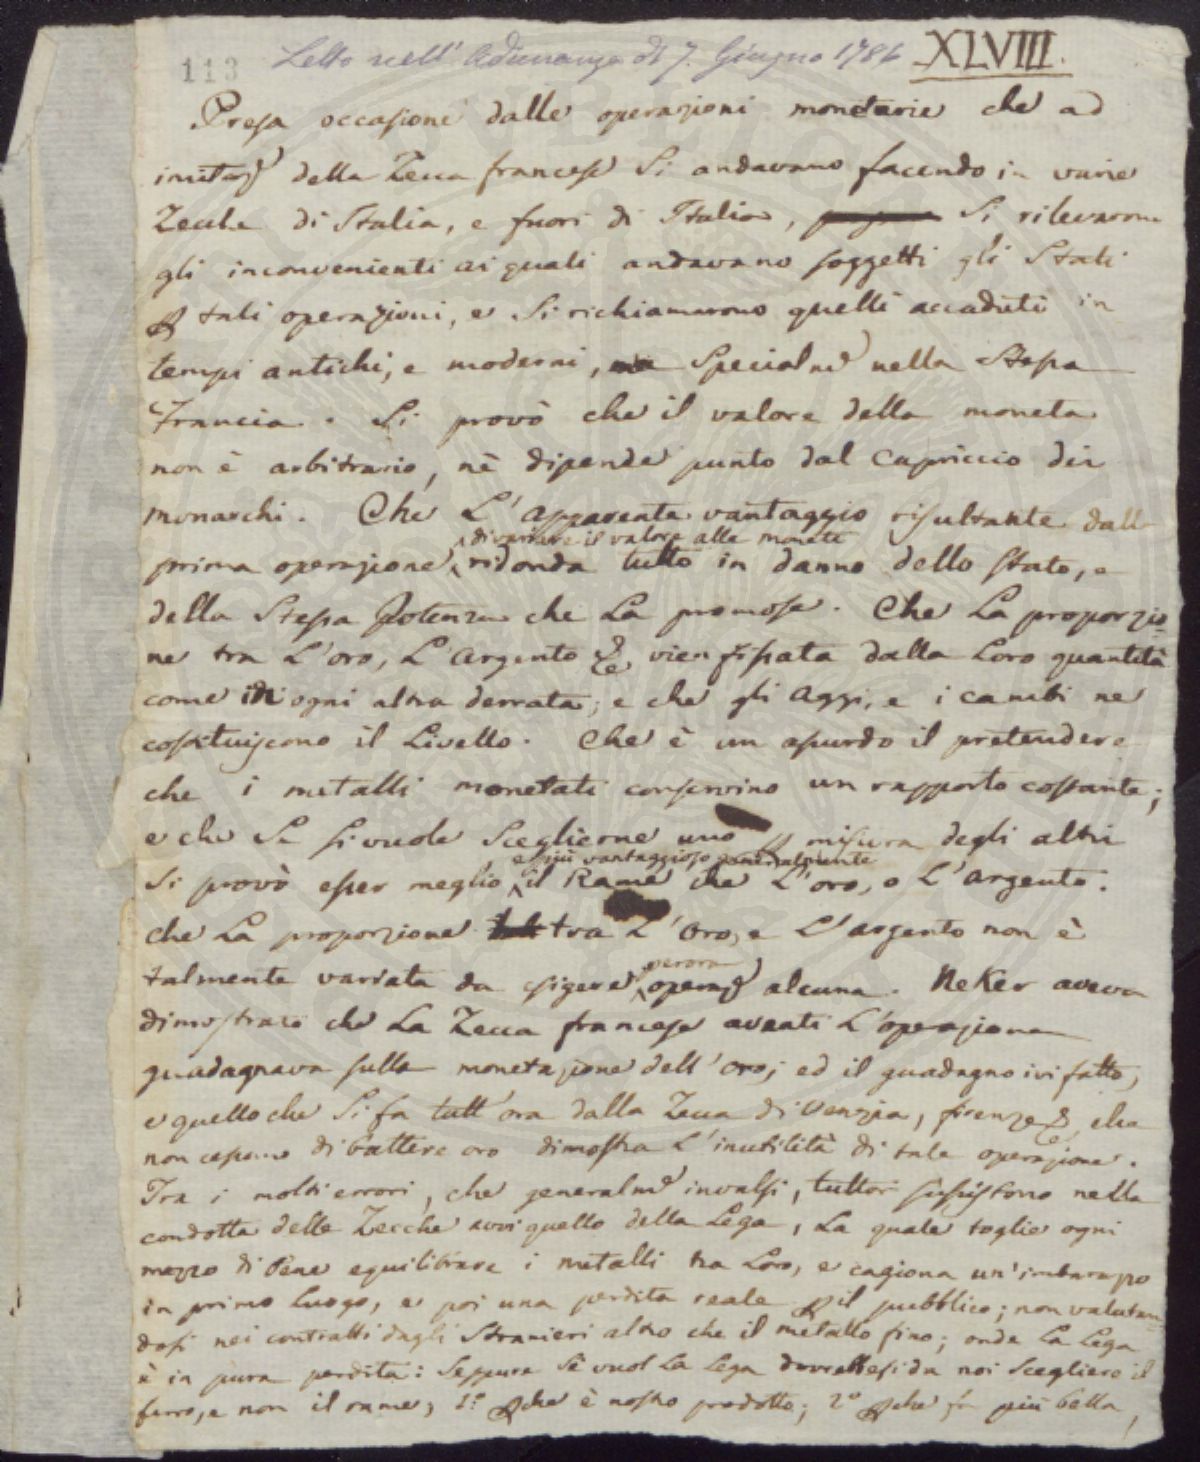 113 Letto nell'Adunanza dì 7. Giugno 1786 XLVIII.
Presa occasione dalle operazioni monetarie che ad
imitaz.e della Zecca francese si andavano facendo in varie
Zecche di Italia, e fuori di Italia, si rilevarono
gli inconvenienti ai quali andavano soggetti gli Stati
p tali operazioni, e si richiamarono quelli accaduti in
tempi antichi, e moderni, specialm.e nella stessa
Francia. Si provò che il valore della moneta
non è arbitrario, nè dipende punto dal capriccio dei
monarchi. Che L'apparente vantaggio risultante dalla
di variare il valore alle monete
prima operazione, ridonda tutto in danno dello stato, e
della stessa Potenza che la promosse. Che La proporzio-
ne tra L'oro, L'argento &c vien fissata dalla Loro quantità
come in ogni altra derrata; e che gli Aggi, e i cambi ne
costituiscono il Livello. Che è un assurdo il pretendere
che i metalli monetati conservino un rapporto costante;
e che se si vuole sceglierne uno p misura degli altri
e più vantaggioso generalmente
si provò esser meglio il Rame che L'oro, o L'argento.
che La proporzione tra L'oro, e L'argento non è
perora
talmente variata da esigere operaz.e alcuna. Neker aveva
dimostrato che La Zecca francese avanti L'operazione
guadagnava sulla monetazione dell'oro; ed il guadagno ivi fatto,
e quello che si fa tutt'ora dalla Zecca di Venezia, firenze &c, che
non cessano di battere oro dimostra L'inutilità di tale operazione.
Tra i molti errori, che generalm.e invalsi, tuttor sussistono nella
condotta delle Zecche avvi quello della Lega, La quale toglie ogni
mezzo di bene equilibrare i metalli tra Loro, e cagiona un'imbarazzo
in primo luogo, e poi una perdita reale p il pubblico; non valutan-
dosi nei contratti dagli stranieri altro che il metallo fino; onde La Lega
è in pura perdita: seppure si vuol La Lega dovrebbesi da noi scegliere il
ferro, e non il rame; 1.º pche è nostro prodotto; 2.º pche fa più bella,